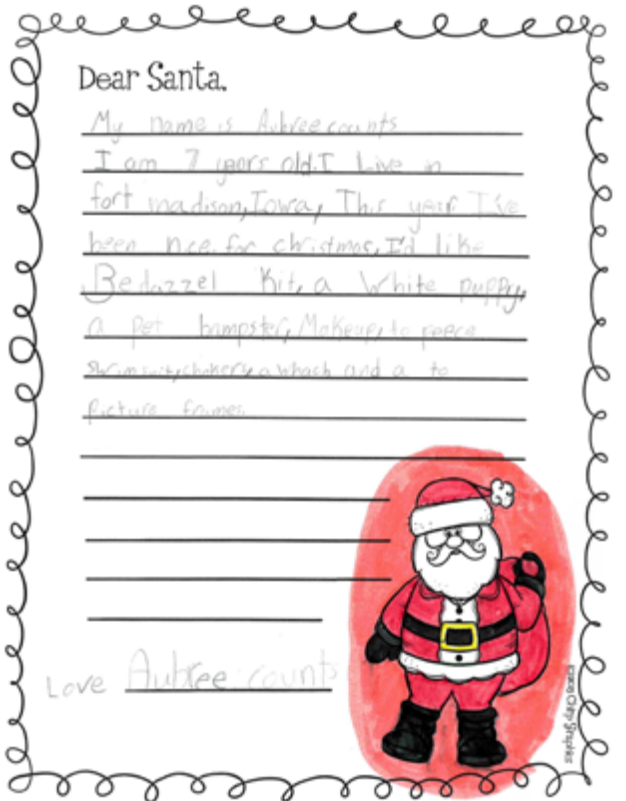 Dear Santa.
My name is Aubree counts
I am 7 years old. I Live in
fort madison, Iowa, This year I've
been nice. for christmas, I'd like
Bedazzel Kit, a White puppy,
a pet hampster, Makeup, to peece
swimsuit, chokers, a whach and a to
Picture frames.
Love Aubree counts